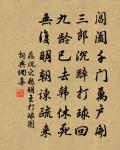 閶闔千門萬戶開
三郎沉醉打球回
九齡已老韓休死
無復明朝諫疏來
晁說之題明王打球圖
詞典網集